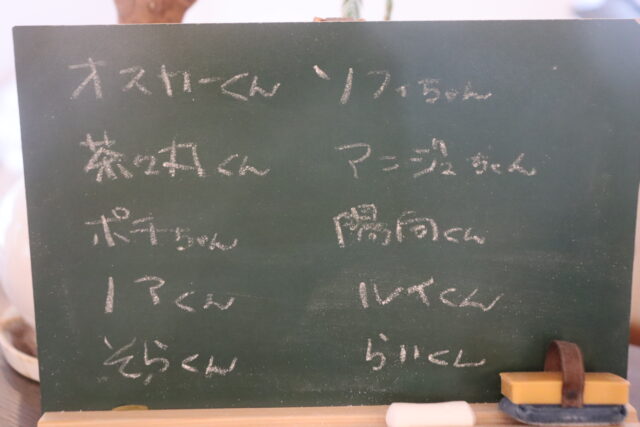 オスカーくん ソフィちゃん
茶々丸くん アンジュちゃん
ポチちゃん 陽向くん
ノアくん ルイくん
そらくん らいくん